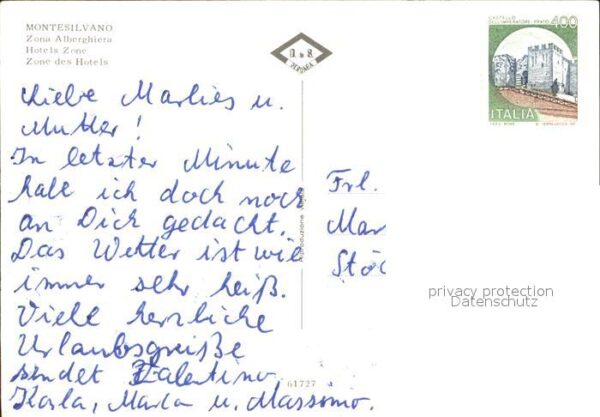 MONTESILVANO
Zona Alberghiera
Hotels Zone
Zone des Hotels
CASTELLO
DELL'IMPERATORE · PRATO 400
ITALIA
Liebe Marlies u.
Mutter!
In letzter Minute
habe ich doch noch
an Dich gedacht.
Das Wetter ist wie
immer sehr heiß.
Viele herzliche
Urlaubsgrüße
sendet Valentino
Karla, Marla u. Massomo.
Frl.
Mar
Stöc
privacy protection
Datenschutz
61727